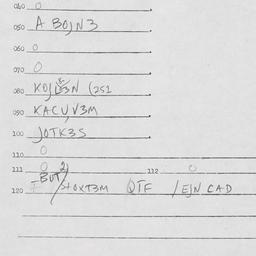 040 0
050 A BOJN3
060 0
070 0
080 KOJL3N (251
090 KACUV3M
100 JOTK3S
110 0
111 0 112 0
120 QTF /EJN CAD